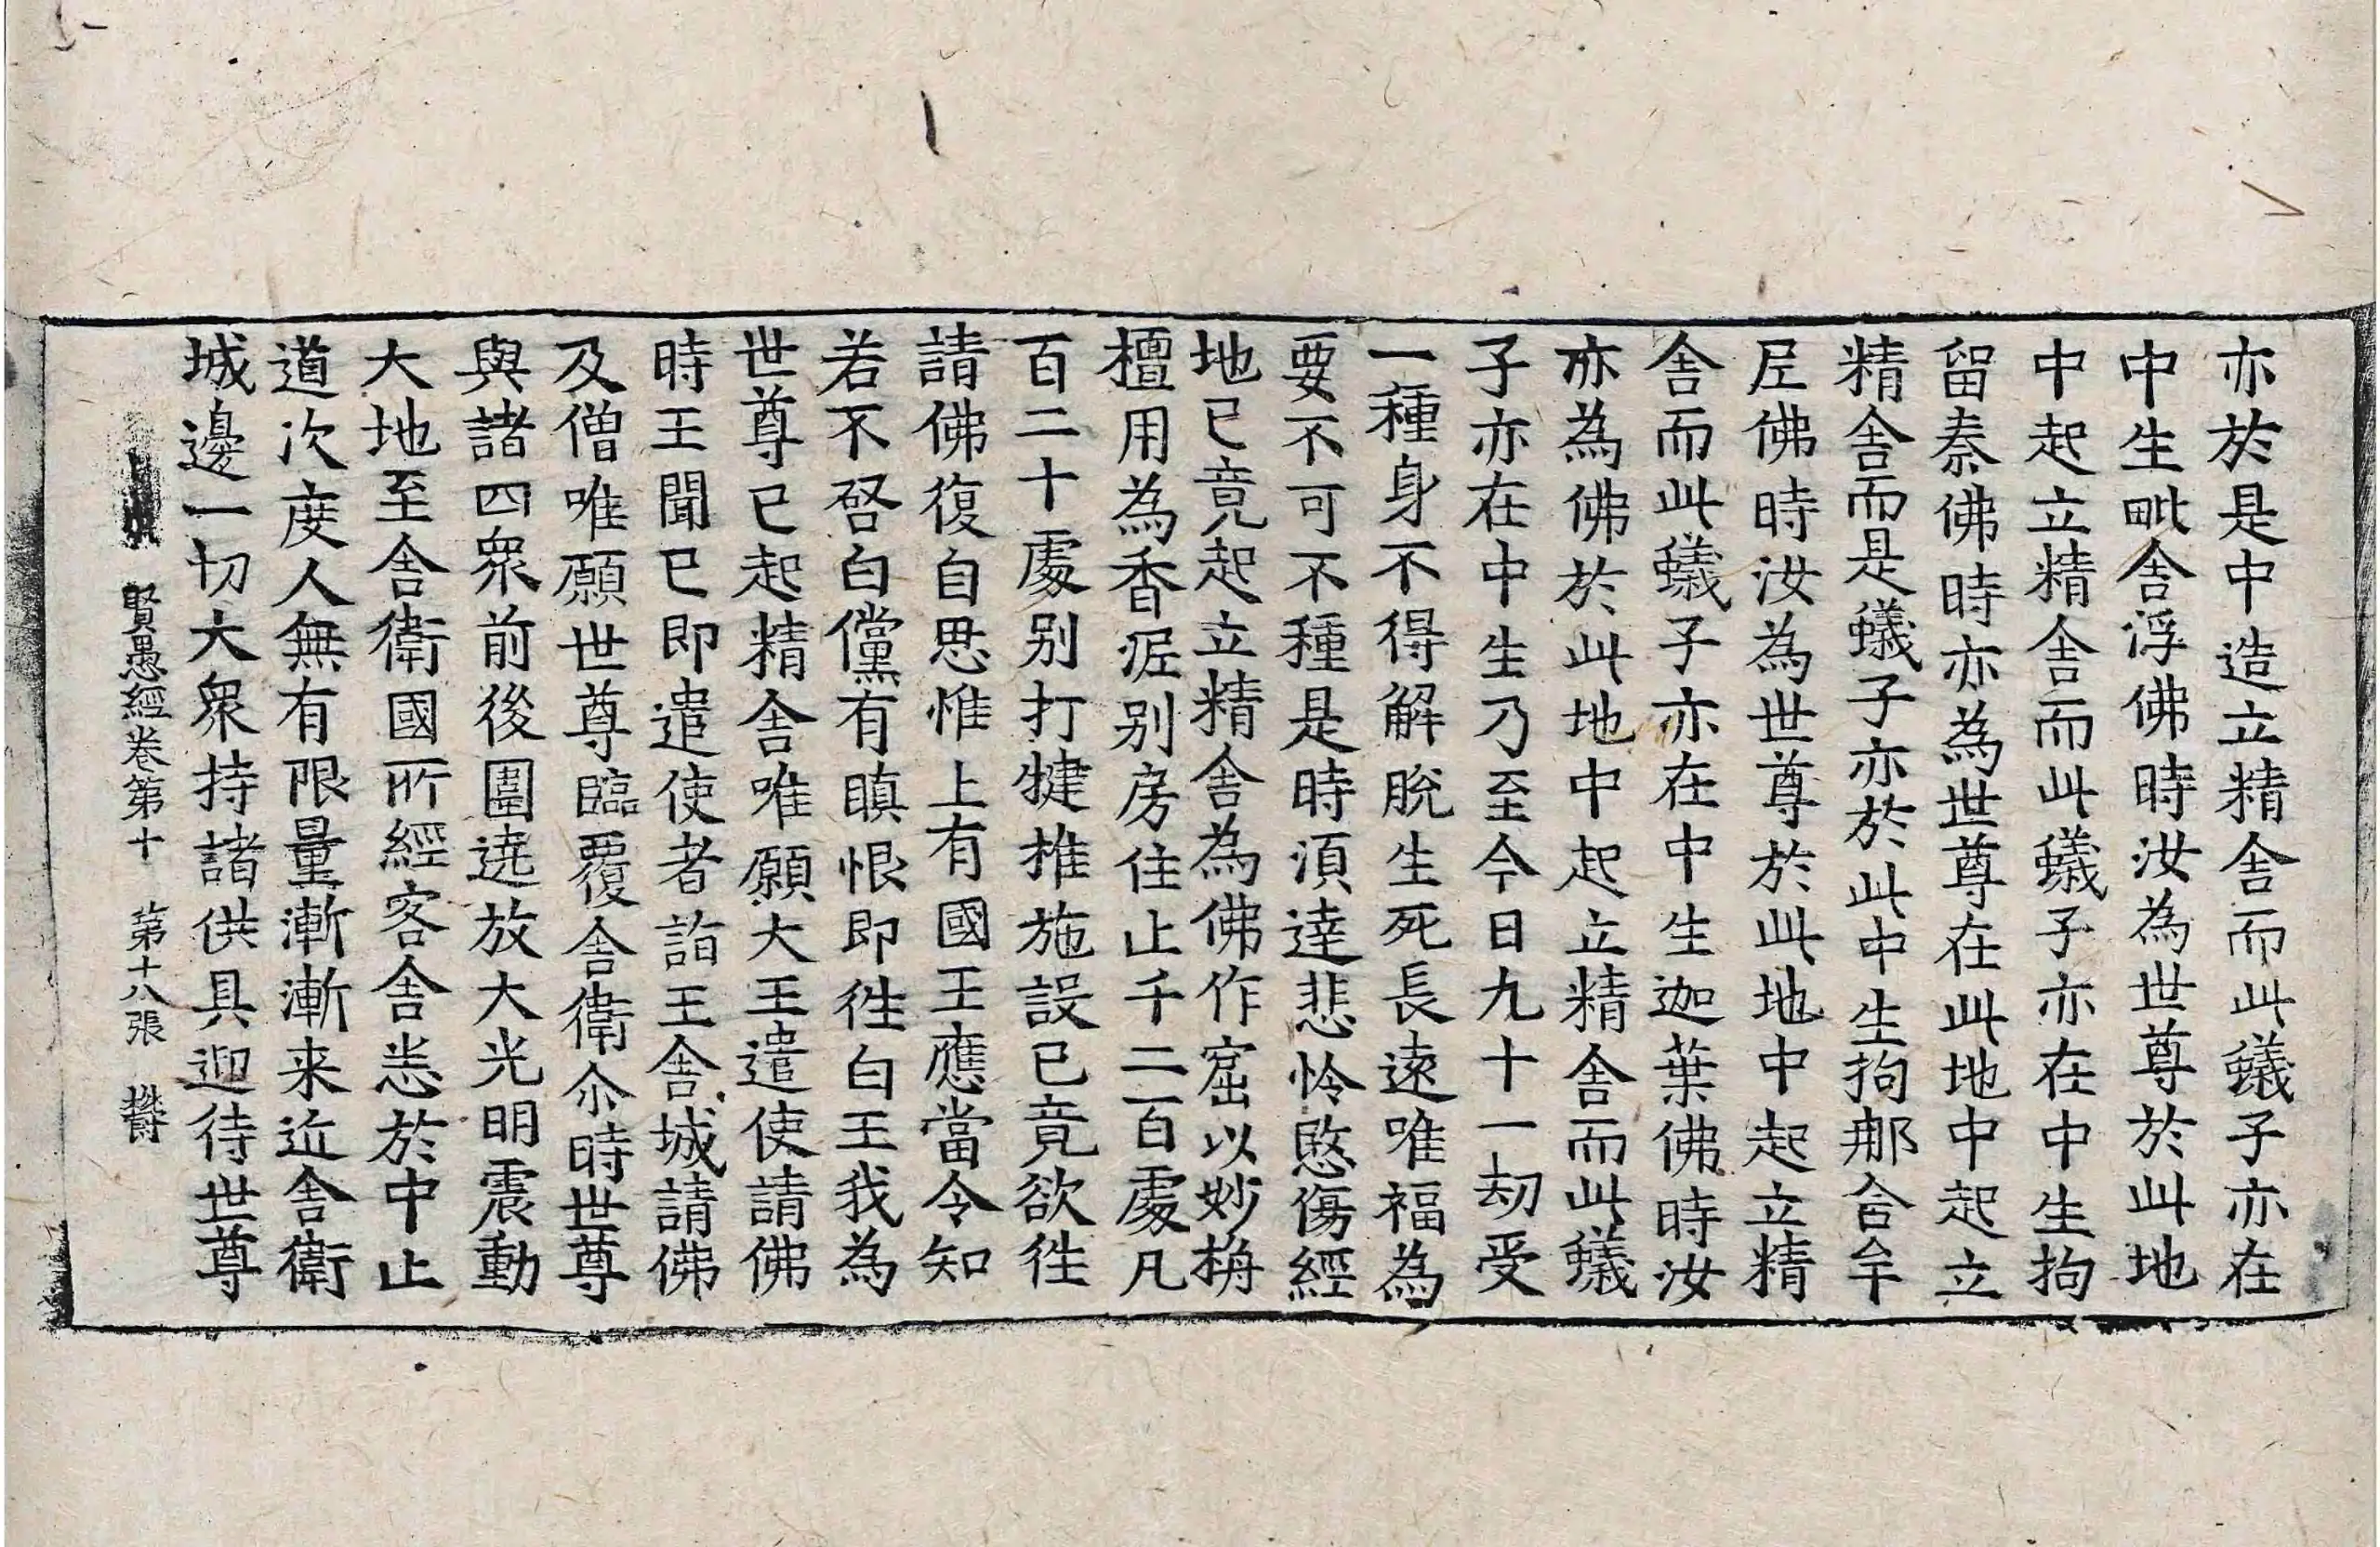 亦於是中造立精舍而此蟻子亦在
中生毗舍浮佛時汝為世尊於此地
中起立精舍而此蟻子亦在中生拘
留秦佛時亦為世尊在此地中起立
精舍而是蟻子亦於此中生拘那含牟
尼佛時汝為世尊於此地中起立精
舍而此蟻子亦在中生迦葉佛時汝
亦為佛於此地中起立精舍而此蟻
子亦在中生乃至今日九十一劫受
一種身不得解脫生死長遠唯福為
要不可不種是時須達悲怜愍傷經
地已竟起立精舍為佛作窟以妙栴
檀用為香泥別房住止千二百處凡
百二十處別打揵椎施設已竟欲往
請佛復自思惟上有國王應當令知
若不啓白儻有瞋恨即往白王我為
世尊已起精舍唯願大王遣使請佛
時王聞已即遣使者詣王舍城請佛
及僧唯願世尊臨覆舍衛尒時世尊
與諸四眾前後圍遶放大光明震動
大地至舍衛國所經客舍悉於中止
道次度人無有限量漸漸来近舍衛
城邊一切大眾持諸供具迎待世尊
賢愚經卷第十 第十八張